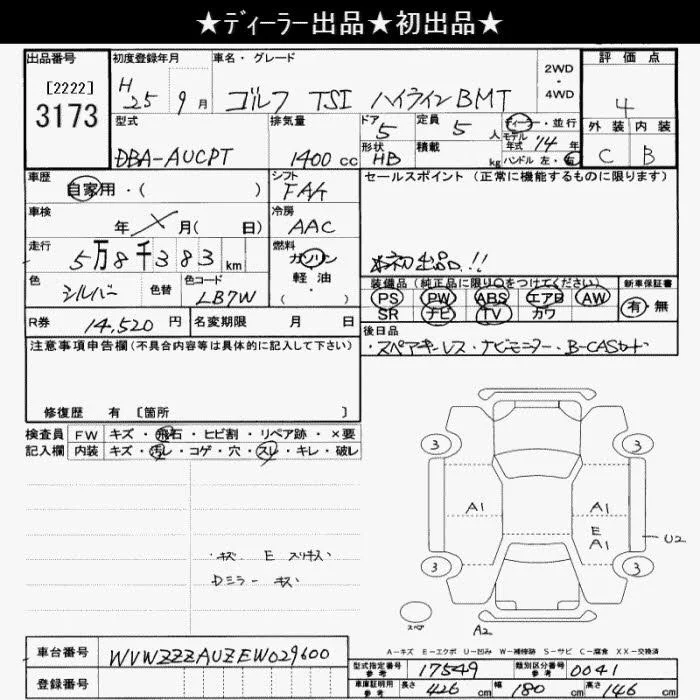 ★ディーラー出品★初出品★
出品番号 初度登録年月 車名・グレード 評価点
[2222]
3173
H 25 9月 ゴルフ TSI ハイラインBMT 2WD・4WD 4
型式 排気量 ドア 定員 ディーラー・並行 外装 内装
DBA-AUCPT 1400cc 5 5人 モデル年式 '14年 C B
形状 HB 積載 kg ハンドル 左・右
車歴 自家用・( ) シフト FAA セールスポイント(正常に機能するものに限ります)
車検 年 月( 日) 冷房 AAC
走行 5万8千383km 燃料 ガソリン 軽油 ・( )
初出品!!
色 シルバー 色替 色コード LB7W
装備品(純正品に限り○をつけてください) 新車保証書
PS PW ABS エアB AW 有・無
SR ナビ TV カワ
R券 14,520円 名変期限 月 日 後日品
・スペアキーレス・ナビモニター・B-CASカード
注意事項申告欄(不具合内容等は具体的に記入して下さい)
修復歴 有 [箇所 ]
検査員 FW キズ・飛石・ヒビ割・リペア跡・×要
記入欄 内装 キズ・汚レ・コゲ・穴・スレ・キレ・破レ
3 3
A1 A1
E
A1 U2
・キズ E スリキズ
Dミラー キズ
3 3
スペア A2
A-キズ E-エクボ U-凹み W-補修跡 S-サビ C-腐食 XX-交換済
車台番号 WVWZZZAUZEW029600
型式指定番号 参考 17549 類別区分番号 参考 0041
登録番号
車庫証明用 参考 長さ 426cm 幅 180cm 高さ 146cm